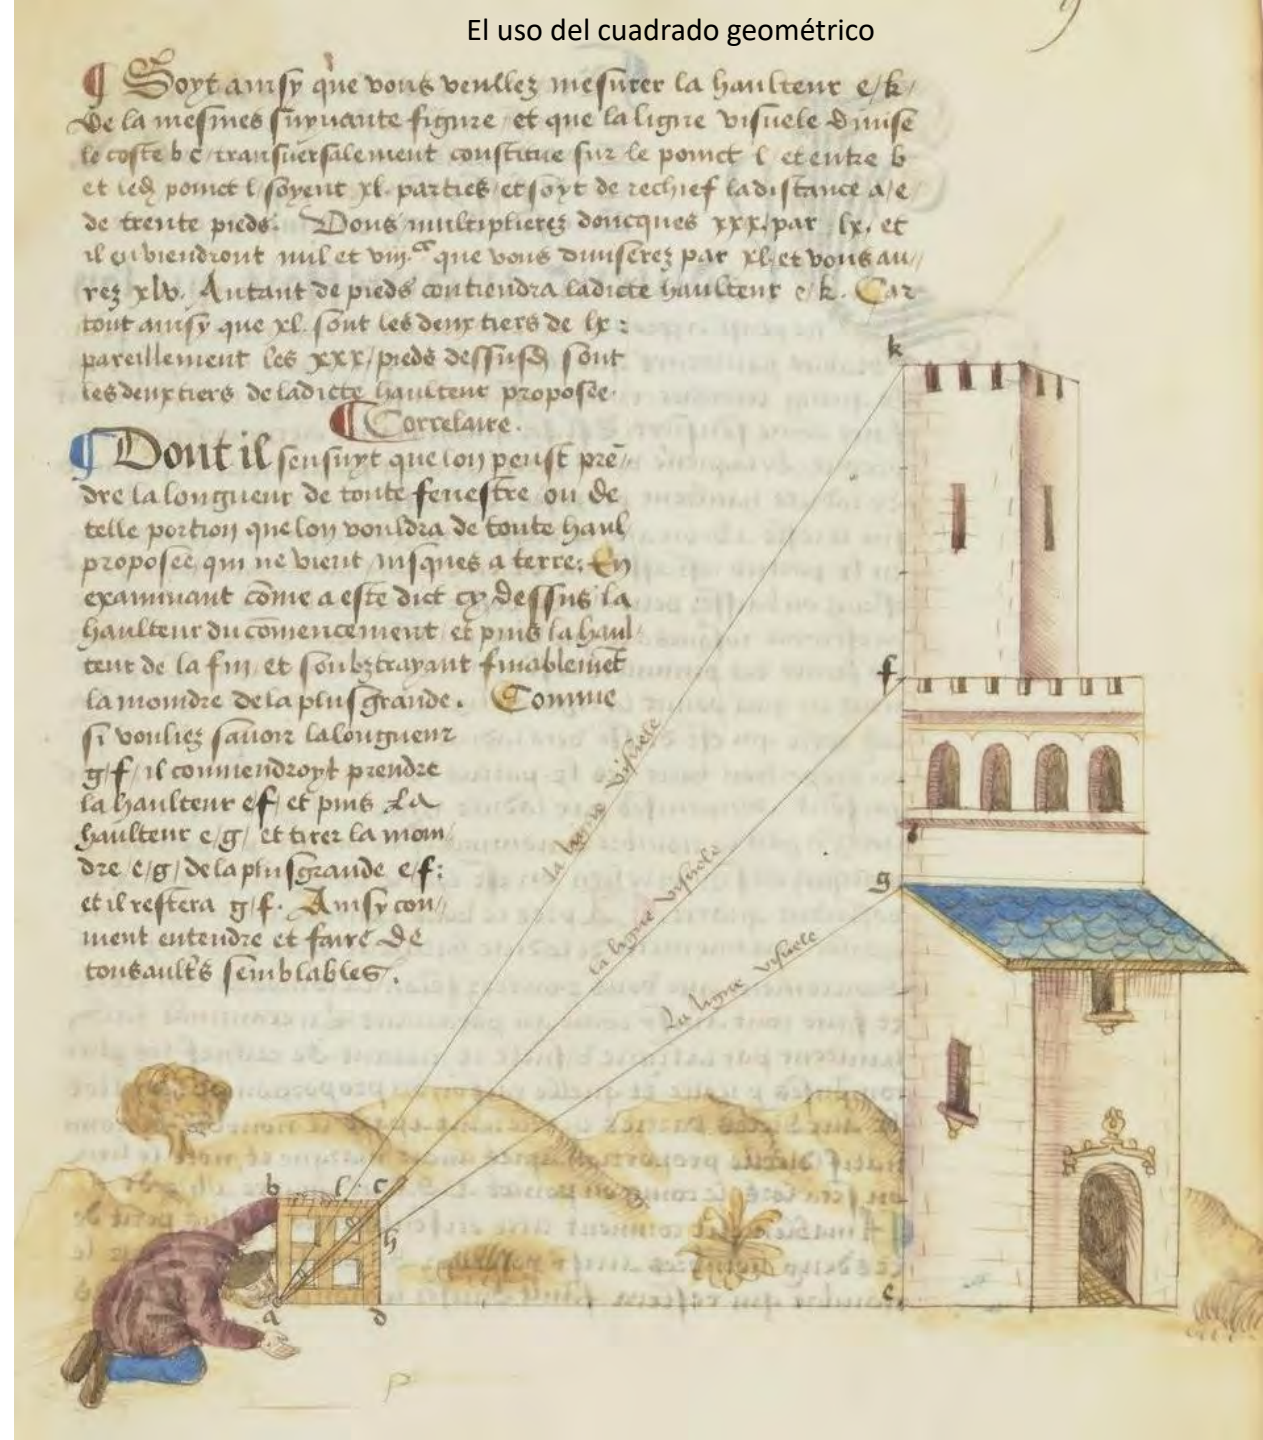 El uso del cuadrado geométrico
¶ Soyt ainsy que vous veullez mesurer la haulteur e/k/
de la mesmes suyuante figure et que la ligne visuele diuise
le coste b c transuersalement constitue sur le poinct l et entre b
et led poinct l soyent xl. parties et soyt de rechief la distance a/e
de trente pieds. Vous multiplierez doncques xxx/par lx, et
il en viendront mil et viij.ᶜ que vous diuiserez par xl, et vous au//
rez xlv. Autant de pieds contiendra ladicte haulteur e/k. Car
tout ainsy que xl. sont les deux tiers de lx:
pareillement les xxx/pieds dessusd sont
les deux tiers de ladicte haulteur proposee.
¶ Correlaire.
¶ Dont il sensuyt que lon peust prē//
dre la longueur de toute fenestre ou de
telle portion que lon vouldra de toute haul
proposee qui ne vient iusques a terre: En
examinant cōme a este dict cy dessus la
haulteur du cōmencement et puis la haul
teur de la fin et soubztrayant finablemēt
la moindre de la plus grande. Comme
si vouliez sauoir la longueur
g/f/ il conuiendroyt prendre
la haulteur e/f/ et puis la
haulteur e/g/ et tirer la moin/
dre e/g/ de la plus grande e/f:
et il restera g/f. Ainsy con//
uient entendre et faire de
tous aultres semblables.
k
f
g
la ligne visuele
la ligne visuele
La ligne visuele
b l c
h
a d
e